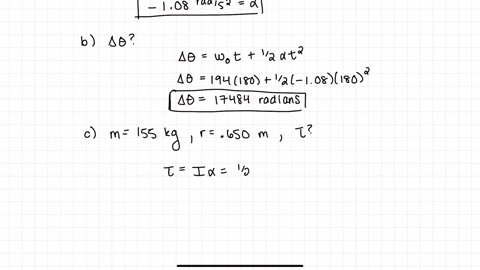 - 1.08 rad/s² = α
b) Δθ?
Δθ = ω₀t + 1/2 αt²
Δθ = 194(180) + 1/2(-1.08)(180)²
Δθ = 17484 radians
c) m = 155 kg, r = .650 m, τ?
τ = Iα = 1/2